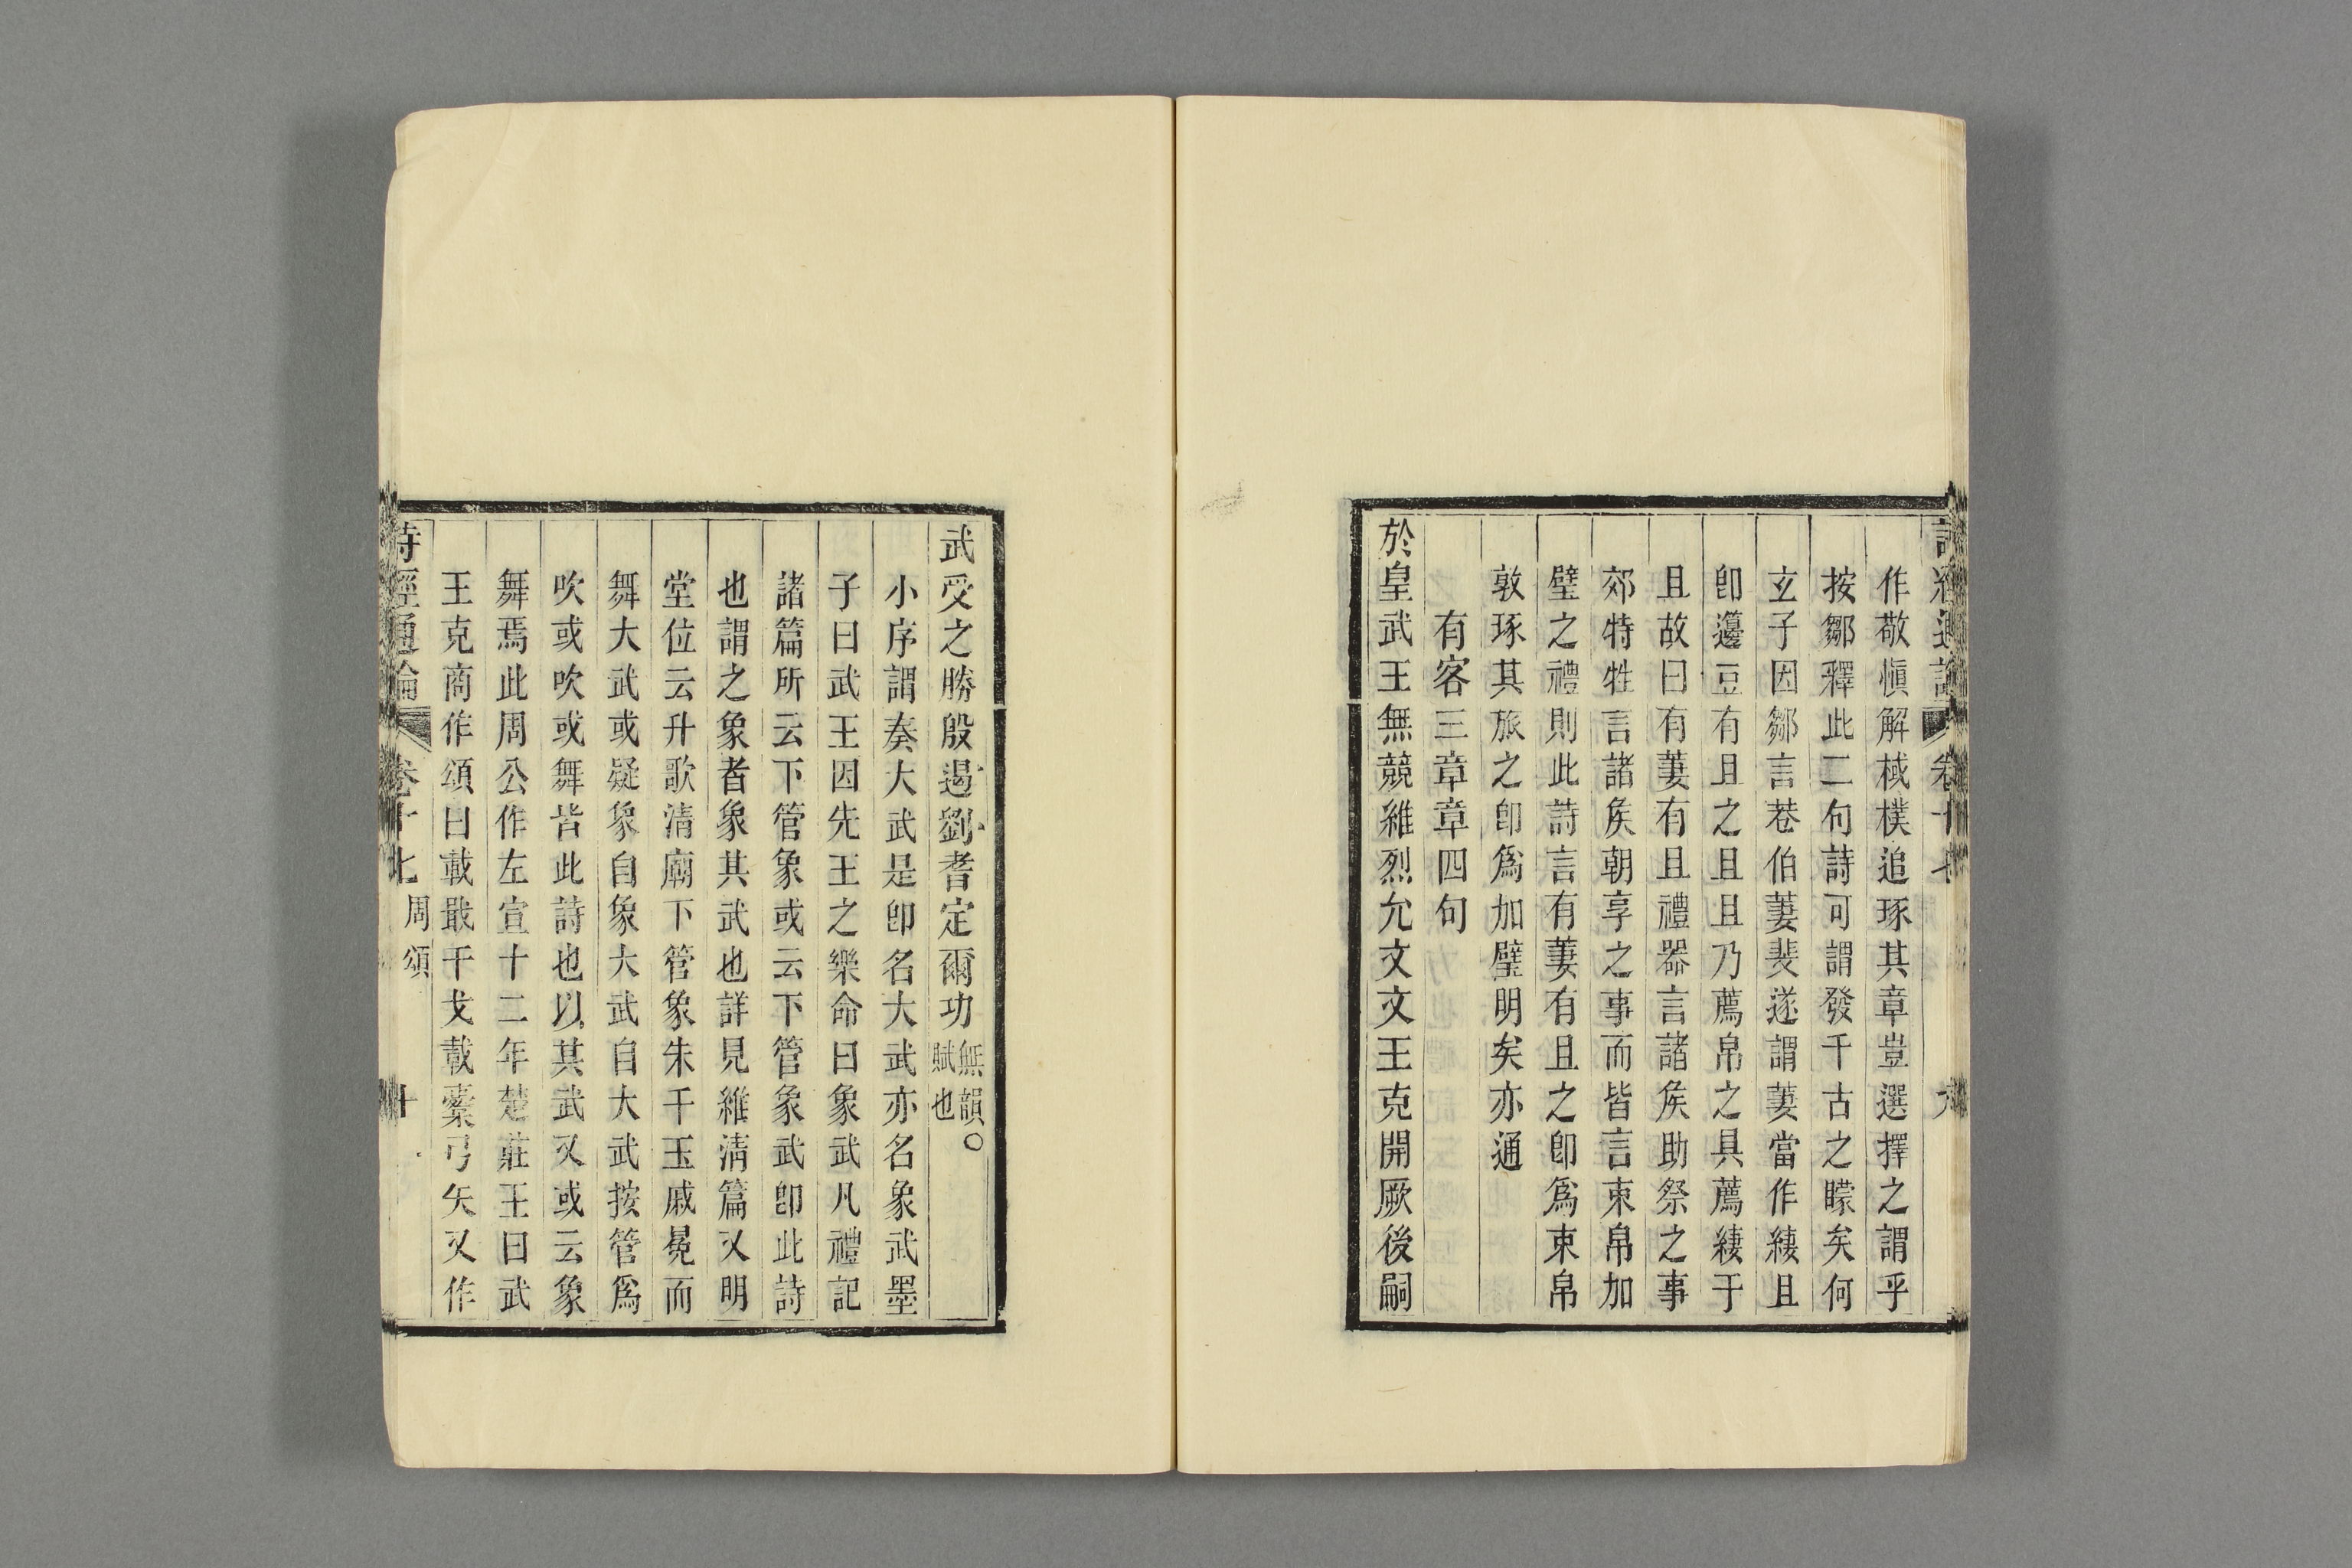 作敬慎解棫樸追琢其章豈選擇之謂乎
按鄒釋此二句詩可謂發千古之矇矣何
玄子因鄒言巷伯萋斐遂謂萋當作緀且
卽籩豆有且之且且乃薦帛之具薦緀于
且故曰有萋有且禮器言諸矦助祭之事
郊特牲言諸矦朝享之事而皆言束帛加
璧之禮則此詩言有萋有且之卽爲束帛
敦琢其旅之卽爲加璧明矣亦通
有客三章章四句
於皇武王無競維烈允文文王克開厥後嗣
武受之勝殷遏劉耆定爾功無韻○賦也
小序謂奏大武是卽名大武亦名象武墨
子曰武王因先王之樂命曰象武凡禮記
諸篇所云下管象或云下管象武卽此詩
也謂之象者象其武也詳見維淸篇又明
堂位云升歌清廟下管象朱干玉戚冕而
舞大武或疑象自象大武自大武按管爲
吹或吹或舞皆此詩也以其武又或云象
舞焉此周公作左宣十二年楚莊王曰武
王克商作頌曰載戢干戈載櫜弓矢又作
詩經通論 卷十七 周頌 十